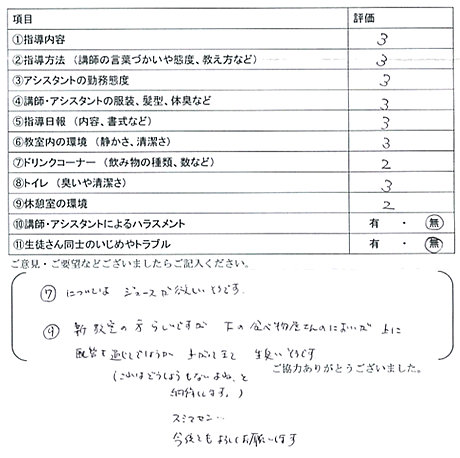 項目 評価
①指導内容 3
②指導方法（講師の言葉づかいや態度、教え方など） 3
③アシスタントの勤務態度 3
④講師・アシスタントの服装、髪型、体臭など 3
⑤指導日報（内容、書式など） 3
⑥教室内の環境（静かさ、清潔さ） 3
⑦ドリンクコーナー（飲み物の種類、数など） 2
⑧トイレ（臭いや清潔さ） 3
⑨休憩室の環境 2
⑩講師・アシスタントによるハラスメント 有・無
⑪生徒さん同士のいじめやトラブル 有・無
ご意見・ご要望などございましたらご記入ください。
⑦ については ジュースが欲しいそうです。
⑨ 新教室の方らしいですが 下の食べ物屋さんのにおいが 上に
配管を通じてでしょうか 上がってきて 生臭いそうです
(これはどうしようもないよね、と
納得してます。)
ご協力ありがとうございました。
スミマセン…
今後ともよろしくお願いします